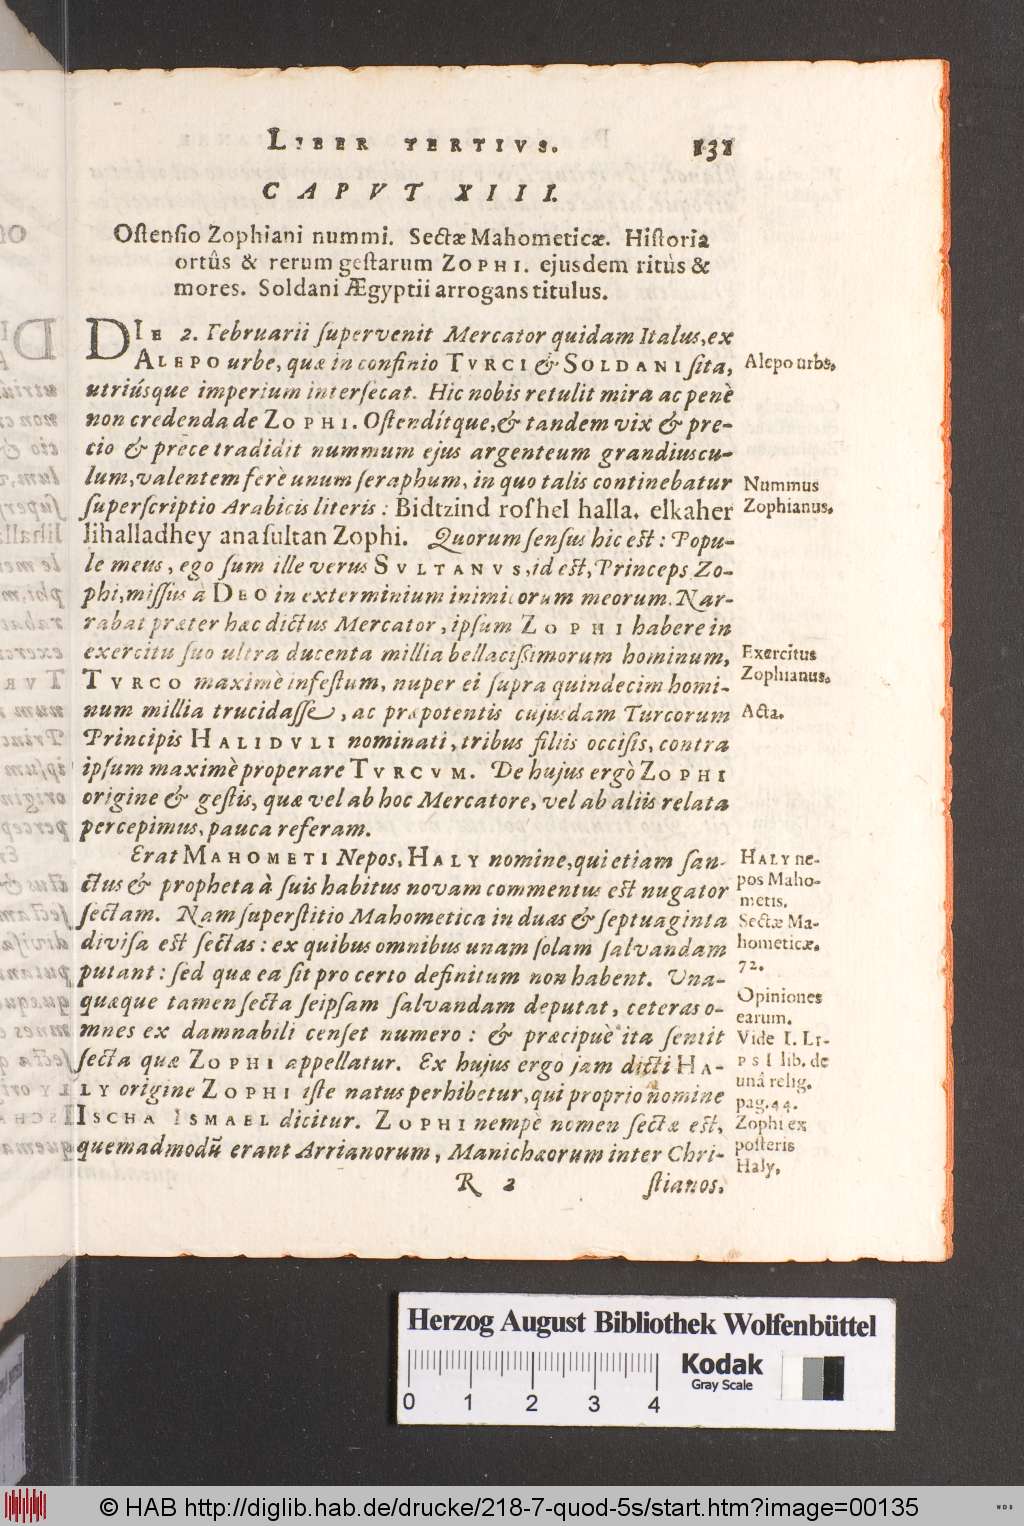 LIBER TERTIVS. 131
CAPVT XIII.
Ostensio Zophiani nummi. Sectæ Mahometicæ. Historia
ortûs & rerum gestarum ZOPHI. ejusdem ritùs &
mores. Soldani Ægyptii arrogans titulus.
DIE 2. Februarii supervenit Mercator quidam Italus, ex
ALEPO urbe, quæ in confinio TVRCI & SOLDANI sita,
utriúsque imperium intersecat. Hic nobis retulit mira ac penè
non credenda de ZOPHI. Ostendítque, & tandem vix & pre-
cio & prece tradidit nummum ejus argenteum grandiuscu-
lum, valentem ferè unum seraphum, in quo talis continebatur
superscriptio Arabicis literis: Bidtzind roshel halla. elkaher
lihalladhey ana sultan Zophi. Quorum sensus hic est: Popu-
le meus, ego sum ille verus SVLTANVS, id est, Princeps Zo-
phi, missus à DEO in exterminium inimicorum meorum. Nar-
rabat præter hæc dictus Mercator, ipsum ZOPHI habere in
exercitu suo ultra ducenta millia bellacissimorum hominum,
TVRCO maximè infestum, nuper ei supra quindecim homi-
num millia trucidasse, ac præpotentis cujusdam Turcorum
Principis HALIDVLI nominati, tribus filiis occisis, contra
ipsum maximè properare TVRCVM. De hujus ergò ZOPHI
origine & gestis, quæ vel ab hoc Mercatore, vel ab aliis relata
percepimus, pauca referam.
Erat MAHOMETI Nepos, HALY nomine, qui etiam san-
ctus & propheta à suis habitus novam commentus est nugator
sectam. Nam superstitio Mahometica in duas & septuaginta
divisa est sectas: ex quibus omnibus unam solam salvandam
putant: sed quæ ea sit pro certo definitum non habent. Una-
quæque tamen secta seipsam salvandam deputat, ceteras o-
mnes ex damnabili censet numero: & præcipuè ita sentit
secta quæ ZOPHI appellatur. Ex hujus ergo jam dicti HA-
LY origine ZOPHI iste natus perhibetur, qui proprio nomine
ISCHA ISMAEL dicitur. ZOPHI nempè nomen sectæ est,
quemadmodū erant Arrianorum, Manichæorum inter Chri-
R 2 stianos.
Alepo urbs.
Nummus
Zophianus.
Exercitus
Zophianus.
Acta.
HALY ne-
pos Maho-
metis.
Sectæ Ma-
hometicæ.
72.
Opiniones
earum.
Vide I. LI-
PSI lib. de
unâ relig.
pag. 44.
Zophi ex
posteris
Haly.
Herzog August Bibliothek Wolfenbüttel
Kodak
Gray Scale
0 1 2 3 4
© HAB http://diglib.hab.de/drucke/218-7-quod-5s/start.htm?image=00135